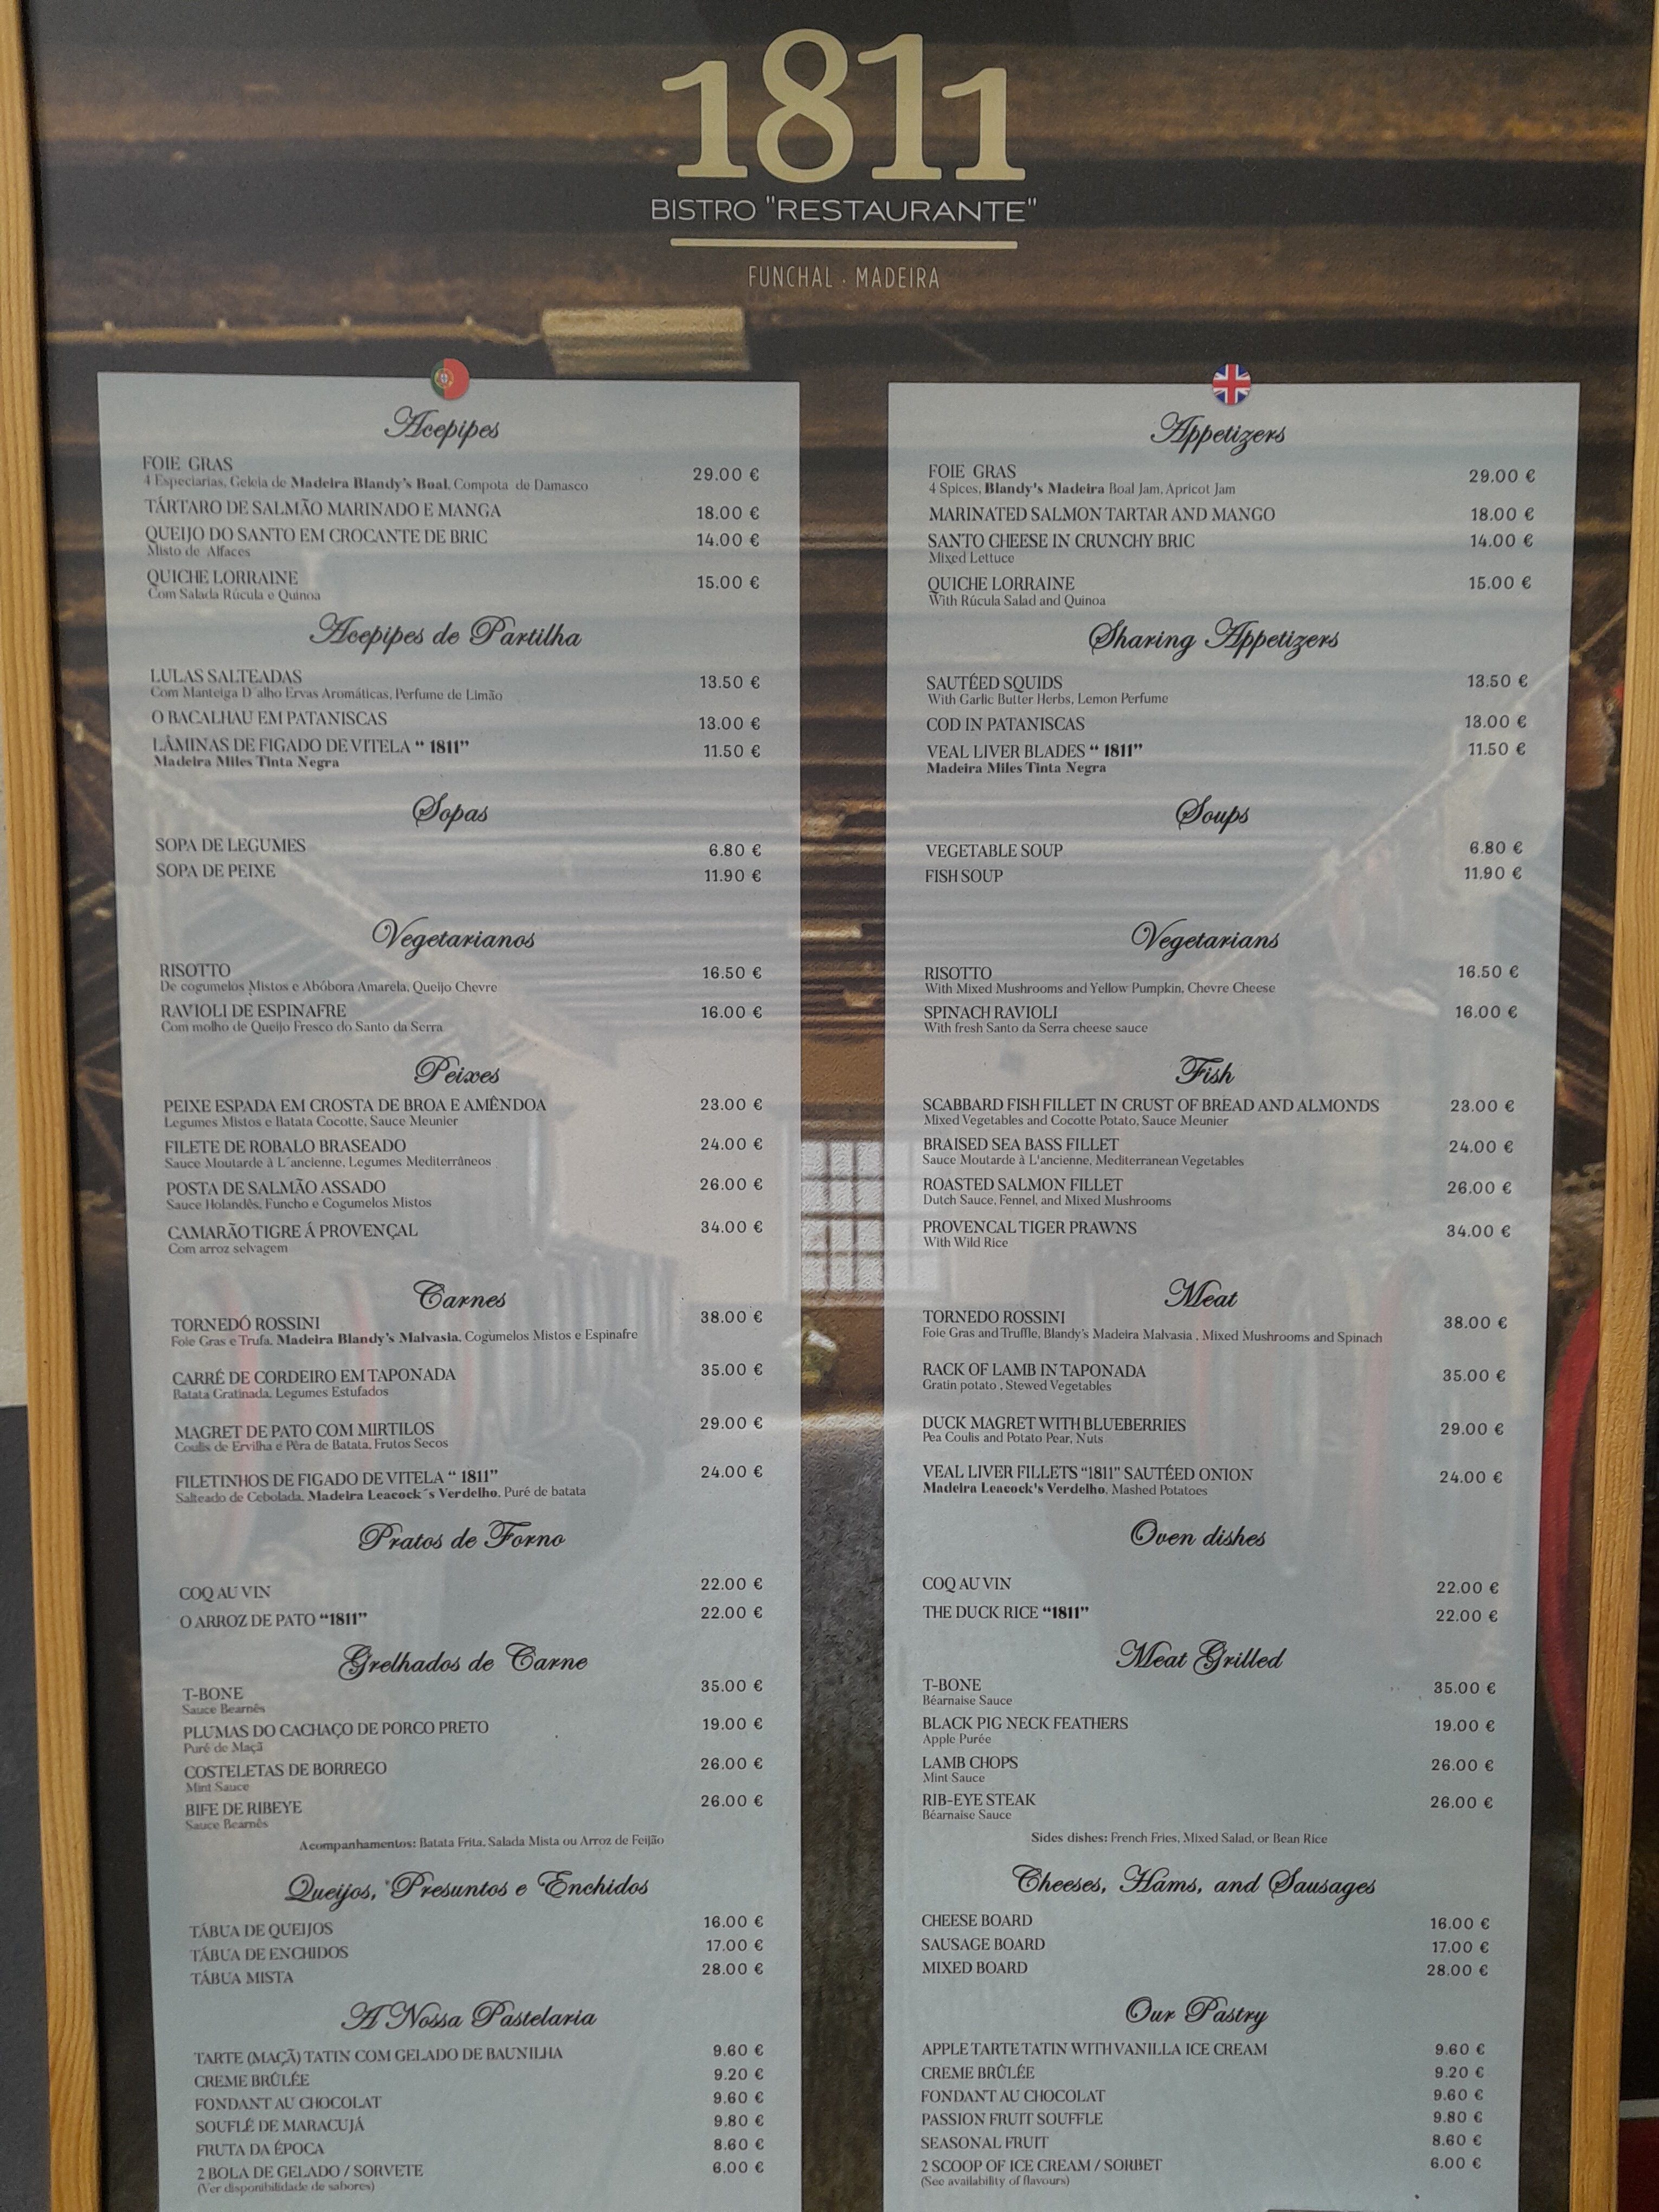 1811
BISTRO "RESTAURANTE"
FUNCHAL · MADEIRA
Acepipes
FOIE GRAS 29.00 €
4 Especiarias, Geleia de Madeira Blandy's Boal, Compota de Damasco
TÁRTARO DE SALMÃO MARINADO E MANGA 18.00 €
QUEIJO DO SANTO EM CROCANTE DE BRIC 14.00 €
Misto de Alfaces
QUICHE LORRAINE 15.00 €
Com Salada Rúcula e Quinoa
Acepipes de Partilha
LULAS SALTEADAS 13.50 €
Com Manteiga D´alho Ervas Aromáticas, Perfume de Limão
O BACALHAU EM PATANISCAS 13.00 €
LÂMINAS DE FIGADO DE VITELA “ 1811” 11.50 €
Madeira Miles Tinta Negra
Sopas
SOPA DE LEGUMES 6.80 €
SOPA DE PEIXE 11.90 €
Vegetarianos
RISOTTO 16.50 €
De cogumelos Mistos e Abóbora Amarela, Queijo Chevre
RAVIOLI DE ESPINAFRE 16.00 €
Com molho de Queijo Fresco do Santo da Serra
Peixes
PEIXE ESPADA EM CROSTA DE BROA E AMÊNDOA 23.00 €
Legumes Mistos e Batata Cocotte, Sauce Meunier
FILETE DE ROBALO BRASEADO 24.00 €
Sauce Moutarde à L´ancienne, Legumes Mediterrâneos
POSTA DE SALMÃO ASSADO 26.00 €
Sauce Holandês, Funcho e Cogumelos Mistos
CAMARÃO TIGRE Á PROVENÇAL 34.00 €
Com arroz selvagem
Carnes
TORNEDÓ ROSSINI 38.00 €
Foie Gras e Trufa, Madeira Blandy's Malvasia, Cogumelos Mistos e Espinafre
CARRÉ DE CORDEIRO EM TAPONADA 35.00 €
Batata Gratinada, Legumes Estufados
MAGRET DE PATO COM MIRTILOS 29.00 €
Coulis de Ervilha e Pêra de Batata, Frutos Secos
FILETINHOS DE FIGADO DE VITELA “ 1811” 24.00 €
Salteado de Cebolada, Madeira Leacock´s Verdelho, Puré de batata
Pratos de Forno
COQ AU VIN 22.00 €
O ARROZ DE PATO “1811” 22.00 €
Grelhados de Carne
T-BONE 35.00 €
Sauce Bearnês
PLUMAS DO CACHAÇO DE PORCO PRETO 19.00 €
Puré de Maçã
COSTELETAS DE BORREGO 26.00 €
Mint Sauce
BIFE DE RIBEYE 26.00 €
Sauce Bearnês
Acompanhamentos: Batata Frita, Salada Mista ou Arroz de Feijão
Queijos, Presuntos e Enchidos
TÁBUA DE QUEIJOS 16.00 €
TÁBUA DE ENCHIDOS 17.00 €
TÁBUA MISTA 28.00 €
A Nossa Pastelaria
TARTE (MAÇÃ) TATIN COM GELADO DE BAUNILHA 9.60 €
CREME BRÛLÉE 9.20 €
FONDANT AU CHOCOLAT 9.60 €
SOUFLÉ DE MARACUJÁ 9.80 €
FRUTA DA ÉPOCA 8.60 €
2 BOLA DE GELADO / SORVETE 6.00 €
(Ver disponibilidade de sabores)
Appetizers
FOIE GRAS 29.00 €
4 Spices, Blandy's Madeira Boal Jam, Apricot Jam
MARINATED SALMON TARTAR AND MANGO 18.00 €
SANTO CHEESE IN CRUNCHY BRIC 14.00 €
Mixed Lettuce
QUICHE LORRAINE 15.00 €
With Rúcula Salad and Quinoa
Sharing Appetizers
SAUTÉED SQUIDS 13.50 €
With Garlic Butter Herbs, Lemon Perfume
COD IN PATANISCAS 13.00 €
VEAL LIVER BLADES “ 1811” 11.50 €
Madeira Miles Tinta Negra
Soups
VEGETABLE SOUP 6.80 €
FISH SOUP 11.90 €
Vegetarians
RISOTTO 16.50 €
With Mixed Mushrooms and Yellow Pumpkin, Chevre Cheese
SPINACH RAVIOLI 16.00 €
With fresh Santo da Serra cheese sauce
Fish
SCABBARD FISH FILLET IN CRUST OF BREAD AND ALMONDS 23.00 €
Mixed Vegetables and Cocotte Potato, Sauce Meunier
BRAISED SEA BASS FILLET 24.00 €
Sauce Moutarde à L'ancienne, Mediterranean Vegetables
ROASTED SALMON FILLET 26.00 €
Dutch Sauce, Fennel, and Mixed Mushrooms
PROVENCAL TIGER PRAWNS 34.00 €
With Wild Rice
Meat
TORNEDO ROSSINI 38.00 €
Foie Gras and Truffle, Blandy's Madeira Malvasia , Mixed Mushrooms and Spinach
RACK OF LAMB IN TAPONADA 35.00 €
Gratin potato , Stewed Vegetables
DUCK MAGRET WITH BLUEBERRIES 29.00 €
Pea Coulis and Potato Pear, Nuts
VEAL LIVER FILLETS “1811” SAUTÉED ONION 24.00 €
Madeira Leacock's Verdelho, Mashed Potatoes
Oven dishes
COQ AU VIN 22.00 €
THE DUCK RICE “1811” 22.00 €
Meat Grilled
T-BONE 35.00 €
Béarnaise Sauce
BLACK PIG NECK FEATHERS 19.00 €
Apple Purée
LAMB CHOPS 26.00 €
Mint Sauce
RIB-EYE STEAK 26.00 €
Béarnaise Sauce
Sides dishes: French Fries, Mixed Salad, or Bean Rice
Cheeses, Hams, and Sausages
CHEESE BOARD 16.00 €
SAUSAGE BOARD 17.00 €
MIXED BOARD 28.00 €
Our Pastry
APPLE TARTE TATIN WITH VANILLA ICE CREAM 9.60 €
CREME BRÛLÉE 9.20 €
FONDANT AU CHOCOLAT 9.60 €
PASSION FRUIT SOUFFLE 9.80 €
SEASONAL FRUIT 8.60 €
2 SCOOP OF ICE CREAM / SORBET 6.00 €
(See availability of flavours)